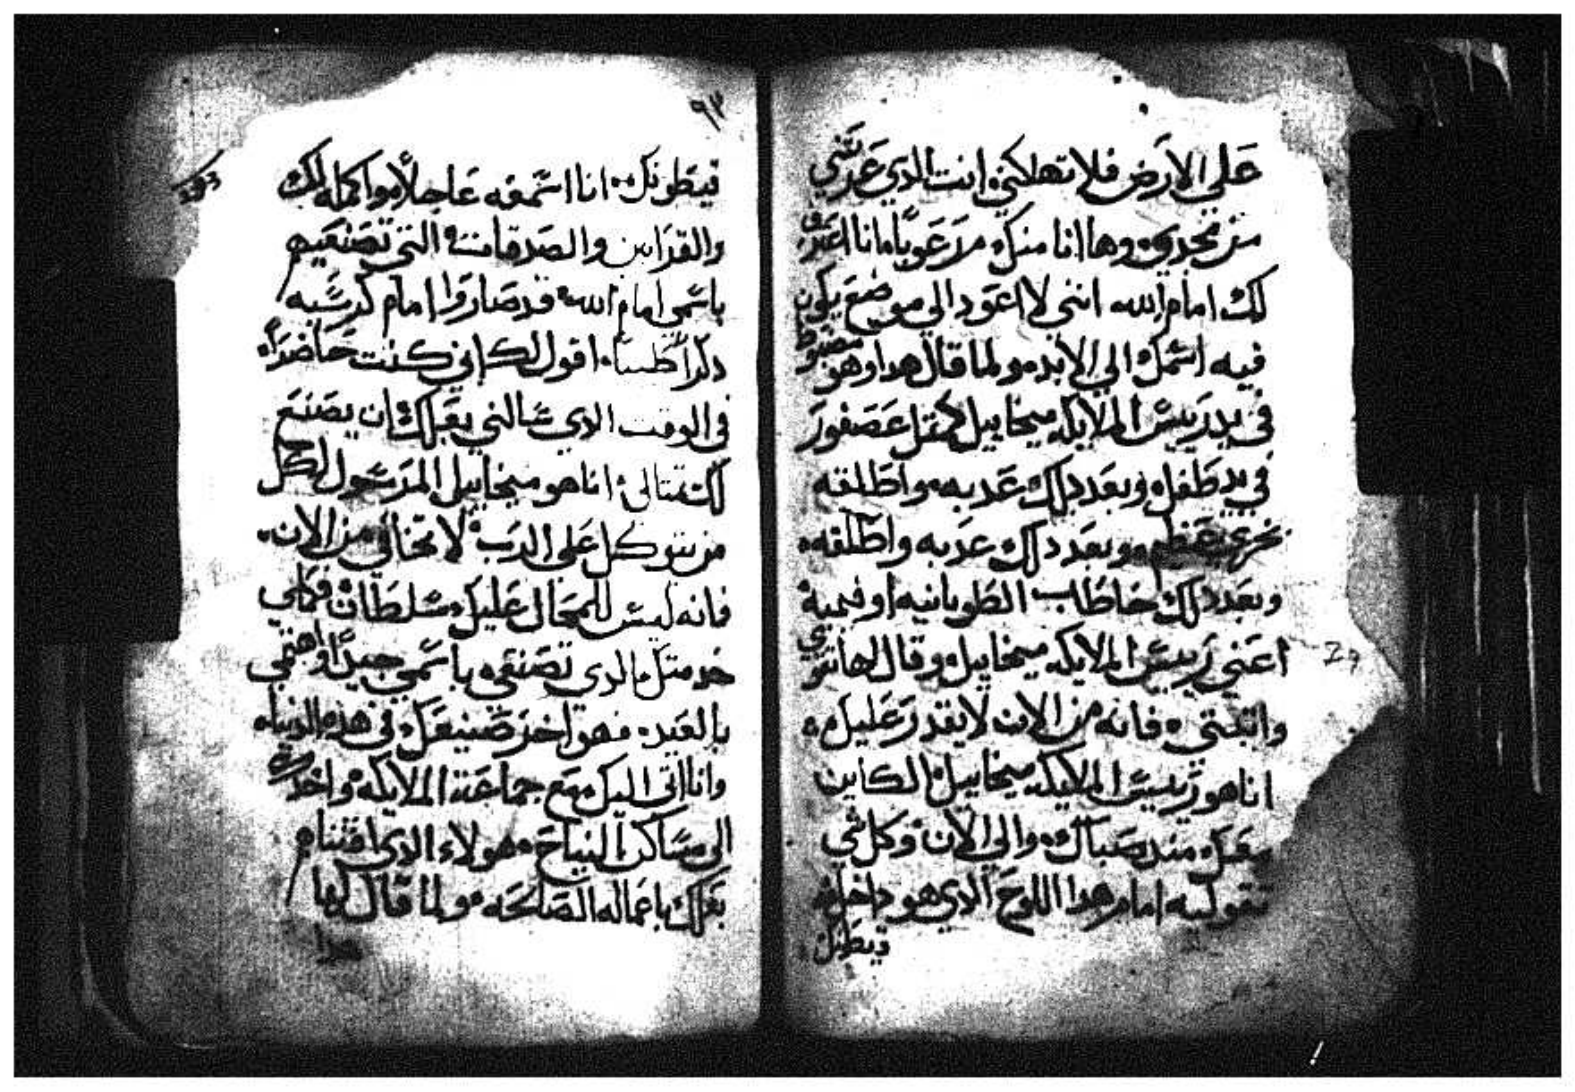 علي الارض فلا تهلكني انت الدي عدتني
من مجدي وها انا منك مرعوبا وانا اعترف
لك امام الله انني لا اعود الي موضع يكون
فيه اسمك الي الابد ولما قال هدا وهو مضبوط
في يد رييس الملايكه ميخاييل كمتل عصفور
في يد طفل وبعد دلك عدبه واطلقه
بخزي عظيم وبعد دلك عدبه واطلقه
وبعد دلك خاطب الطوبانيه اوفيمية
اعني رييس الملايكه ميخاييل وقال لها تقوي
واتبتي فانه من الان لا يقدر عليك
انا هو رييس الملايكه ميخاييل الكاين
معك مند صباك والي الان وكل شي
تقوليه امام هدا اللوح الدي هو داخل
قيطونك
٩٣
قيطونك انا اسمعه عاجلا واكمله لك
والقرابين والصدقات التي تصنعيهم
باسمي امام الله قد صاروا امام كرسيه
دكرا طيبا اقول لك اني كنت حاضرا
في الوقت الدي سالتي بعلك ان يصنع
لك تمتالي انا هو ميخاييل المرسول لكل
من يتوكل علي الرب لا تخافي من الان
فانه ليس للمحال عليك سلطان فكملي
خدمتك الدي تصنعي باسمي جيدا واهتمي
بالعيد فهو اخر صنيعك في هذه الدنيا
وانا اتي اليك مع جماعة الملايكه واخدك
الي مساكن النياح هولاء الدي اقتناهم
بعلك باعماله الصالحه ولما قال لها
هدا